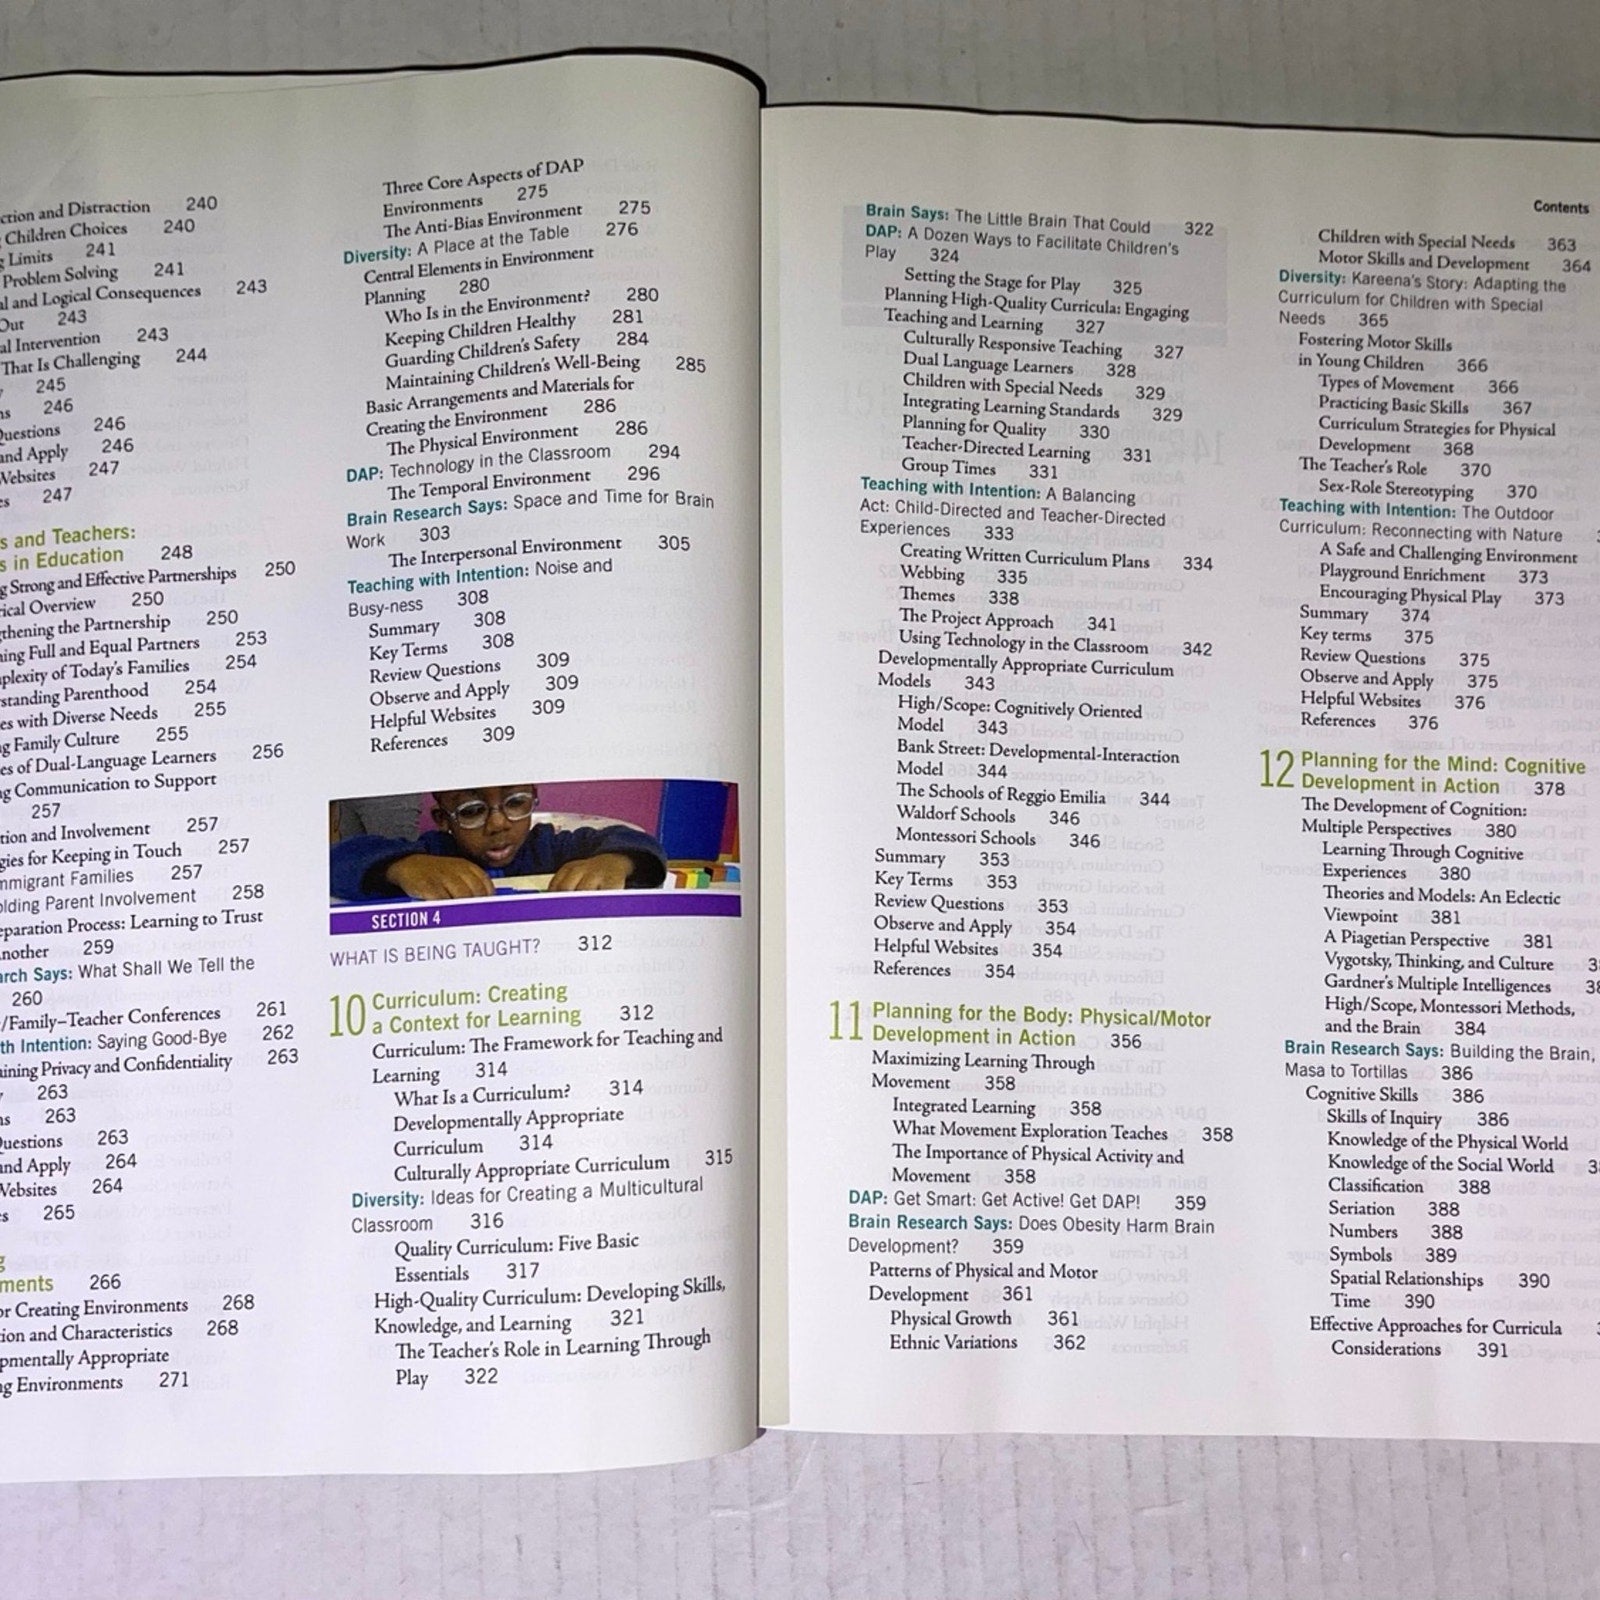 ction and Distraction 240
Children Choices 240
Limits 241
Problem Solving 241
al and Logical Consequences 243
Out 243
al Intervention 243
That Is Challenging 244
245
ns 246
Questions 246
and Apply 246
Websites 247
es 247
s and Teachers:
s in Education 248
g Strong and Effective Partnerships 250
rical Overview 250
gthening the Partnership 250
ning Full and Equal Partners 253
mplexity of Today's Families 254
rstanding Parenthood 254
es with Diverse Needs 255
ng Family Culture 255
es of Dual-Language Learners 256
ng Communication to Support
257
tion and Involvement 257
gies for Keeping in Touch 257
mmigrant Families 257
olding Parent Involvement 258
eparation Process: Learning to Trust
nother 259
arch Says: What Shall We Tell the
260
/Family–Teacher Conferences 261
th Intention: Saying Good-Bye 262
aining Privacy and Confidentiality 263
263
ns 263
Questions 263
and Apply 264
Websites 264
es 265
g
ments 266
or Creating Environments 268
tion and Characteristics 268
pmentally Appropriate
ng Environments 271
Three Core Aspects of DAP
Environments 275
The Anti-Bias Environment 275
Diversity: A Place at the Table 276
Central Elements in Environment
Planning 280
Who Is in the Environment? 280
Keeping Children Healthy 281
Guarding Children's Safety 284
Maintaining Children's Well-Being 285
Basic Arrangements and Materials for
Creating the Environment 286
The Physical Environment 286
DAP: Technology in the Classroom 294
The Temporal Environment 296
Brain Research Says: Space and Time for Brain
Work 303
The Interpersonal Environment 305
Teaching with Intention: Noise and
Busy-ness 308
Summary 308
Key Terms 308
Review Questions 309
Observe and Apply 309
Helpful Websites 309
References 309
SECTION 4
WHAT IS BEING TAUGHT? 312
10 Curriculum: Creating
a Context for Learning 312
Curriculum: The Framework for Teaching and
Learning 314
What Is a Curriculum? 314
Developmentally Appropriate
Curriculum 314
Culturally Appropriate Curriculum 315
Diversity: Ideas for Creating a Multicultural
Classroom 316
Quality Curriculum: Five Basic
Essentials 317
High-Quality Curriculum: Developing Skills,
Knowledge, and Learning 321
The Teacher's Role in Learning Through
Play 322
Contents
Brain Says: The Little Brain That Could 322
DAP: A Dozen Ways to Facilitate Children's
Play 324
Setting the Stage for Play 325
Planning High-Quality Curricula: Engaging
Teaching and Learning 327
Culturally Responsive Teaching 327
Dual Language Learners 328
Children with Special Needs 329
Integrating Learning Standards 329
Planning for Quality 330
Teacher-Directed Learning 331
Group Times 331
Teaching with Intention: A Balancing
Act: Child-Directed and Teacher-Directed
Experiences 333
Creating Written Curriculum Plans 334
Webbing 335
Themes 338
The Project Approach 341
Using Technology in the Classroom 342
Developmentally Appropriate Curriculum
Models 343
High/Scope: Cognitively Oriented
Model 343
Bank Street: Developmental-Interaction
Model 344
The Schools of Reggio Emilia 344
Waldorf Schools 346
Montessori Schools 346
Summary 353
Key Terms 353
Review Questions 353
Observe and Apply 354
Helpful Websites 354
References 354
11 Planning for the Body: Physical/Motor
Development in Action 356
Maximizing Learning Through
Movement 358
Integrated Learning 358
What Movement Exploration Teaches 358
The Importance of Physical Activity and
Movement 358
DAP: Get Smart: Get Active! Get DAP! 359
Brain Research Says: Does Obesity Harm Brain
Development? 359
Patterns of Physical and Motor
Development 361
Physical Growth 361
Ethnic Variations 362
Children with Special Needs 363
Motor Skills and Development 364
Diversity: Kareena's Story: Adapting the
Curriculum for Children with Special
Needs 365
Fostering Motor Skills
in Young Children 366
Types of Movement 366
Practicing Basic Skills 367
Curriculum Strategies for Physical
Development 368
The Teacher's Role 370
Sex-Role Stereotyping 370
Teaching with Intention: The Outdoor
Curriculum: Reconnecting with Nature
A Safe and Challenging Environment
Playground Enrichment 373
Encouraging Physical Play 373
Summary 374
Key terms 375
Review Questions 375
Observe and Apply 375
Helpful Websites 376
References 376
12 Planning for the Mind: Cognitive
Development in Action 378
The Development of Cognition:
Multiple Perspectives 380
Learning Through Cognitive
Experiences 380
Theories and Models: An Eclectic
Viewpoint 381
A Piagetian Perspective 381
Vygotsky, Thinking, and Culture
Gardner's Multiple Intelligences
High/Scope, Montessori Methods,
and the Brain 384
Brain Research Says: Building the Brain,
Masa to Tortillas 386
Cognitive Skills 386
Skills of Inquiry 386
Knowledge of the Physical World
Knowledge of the Social World
Classification 388
Seriation 388
Numbers 388
Symbols 389
Spatial Relationships 390
Time 390
Effective Approaches for Curricula
Considerations 391